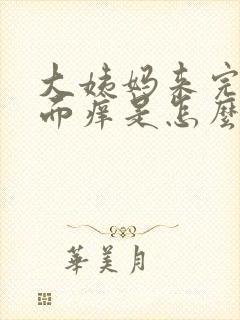 大姨妈来完
而痒是怎麼
華美月